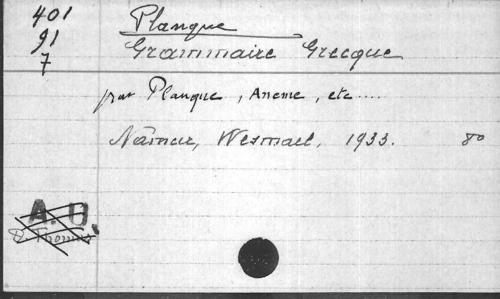 401
91
7
Planque
Grammaire Grecque
par Planque, Aneme, etc....
Namur, Wesmael, 1933. 8°
A. D.